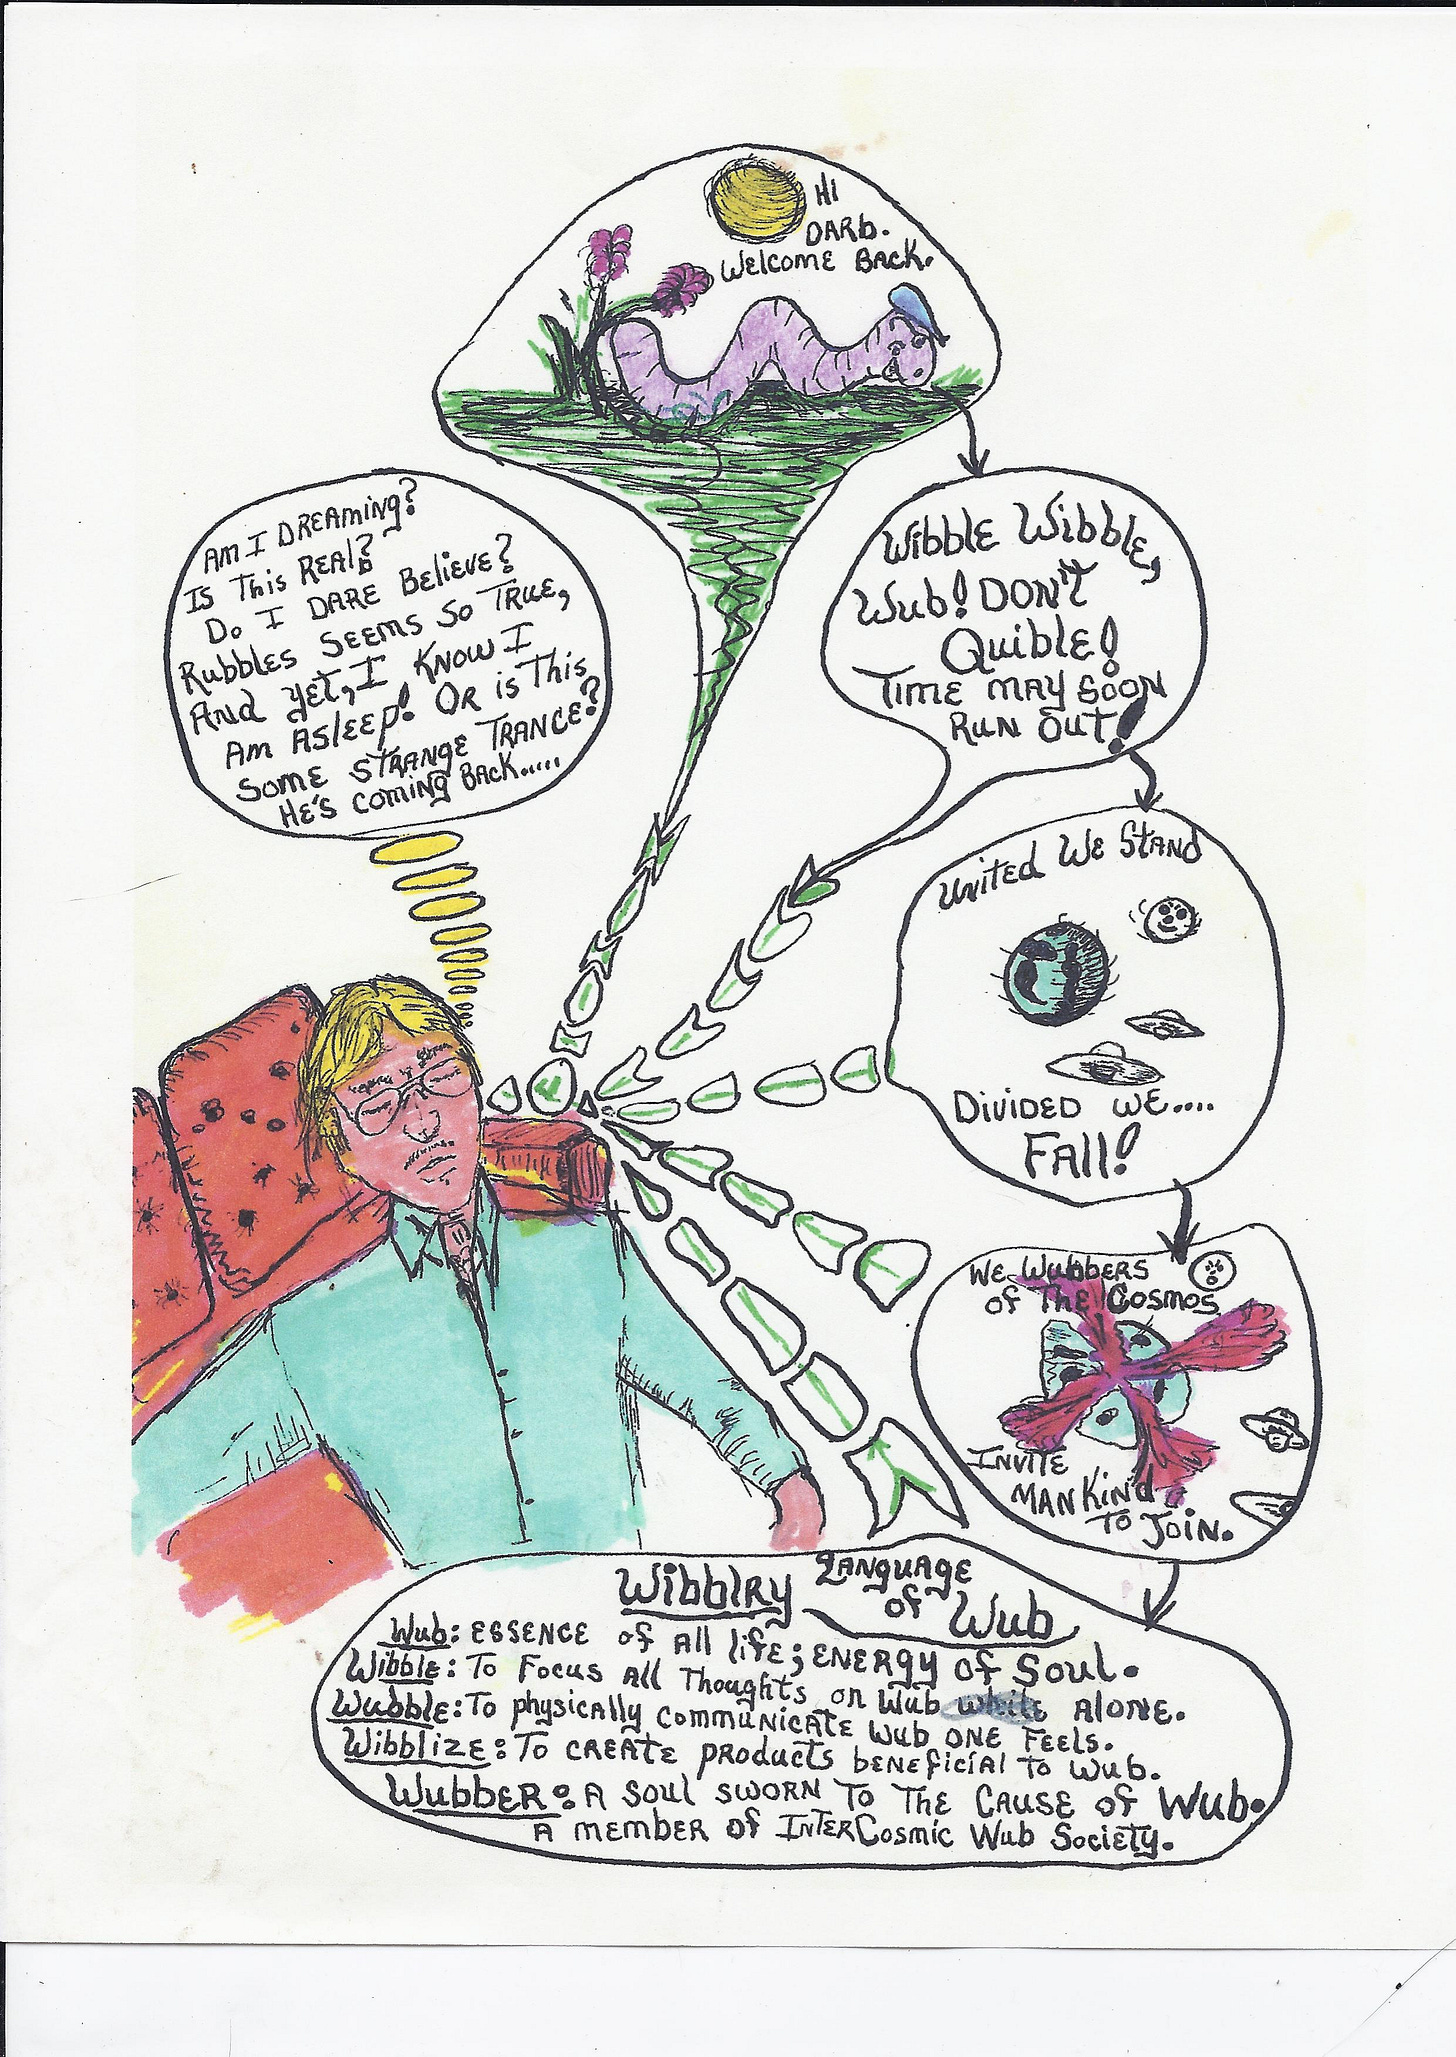 HI
DARb.
Welcome Back.
Am I DREAMING?
Is This REAl?
Do I DARE Believe?
Rubbles SEEMS SO TRUE,
And yet, I Know I
Am Asleep! Or is This
Some STRANGE TRANCE?
He's coming Back.....
Wibble Wibble,
Wub! DON'T
Quible!
TIME may soon
Run out!
United We Stand
Divided We....
Fall!
We Wubbers
of The Cosmos
Invite
Mankind
To Join.
Wibblry Language
of Wub
Wub: Essence of all life; Energy of Soul.
Wibble: To Focus all Thoughts on Wub while alone.
Wubble: To physically communicate Wub one feels.
Wibblize: To create products beneficial to Wub.
Wubber: A soul sworn to the cause of Wub.
A member of InterCosmic Wub Society.